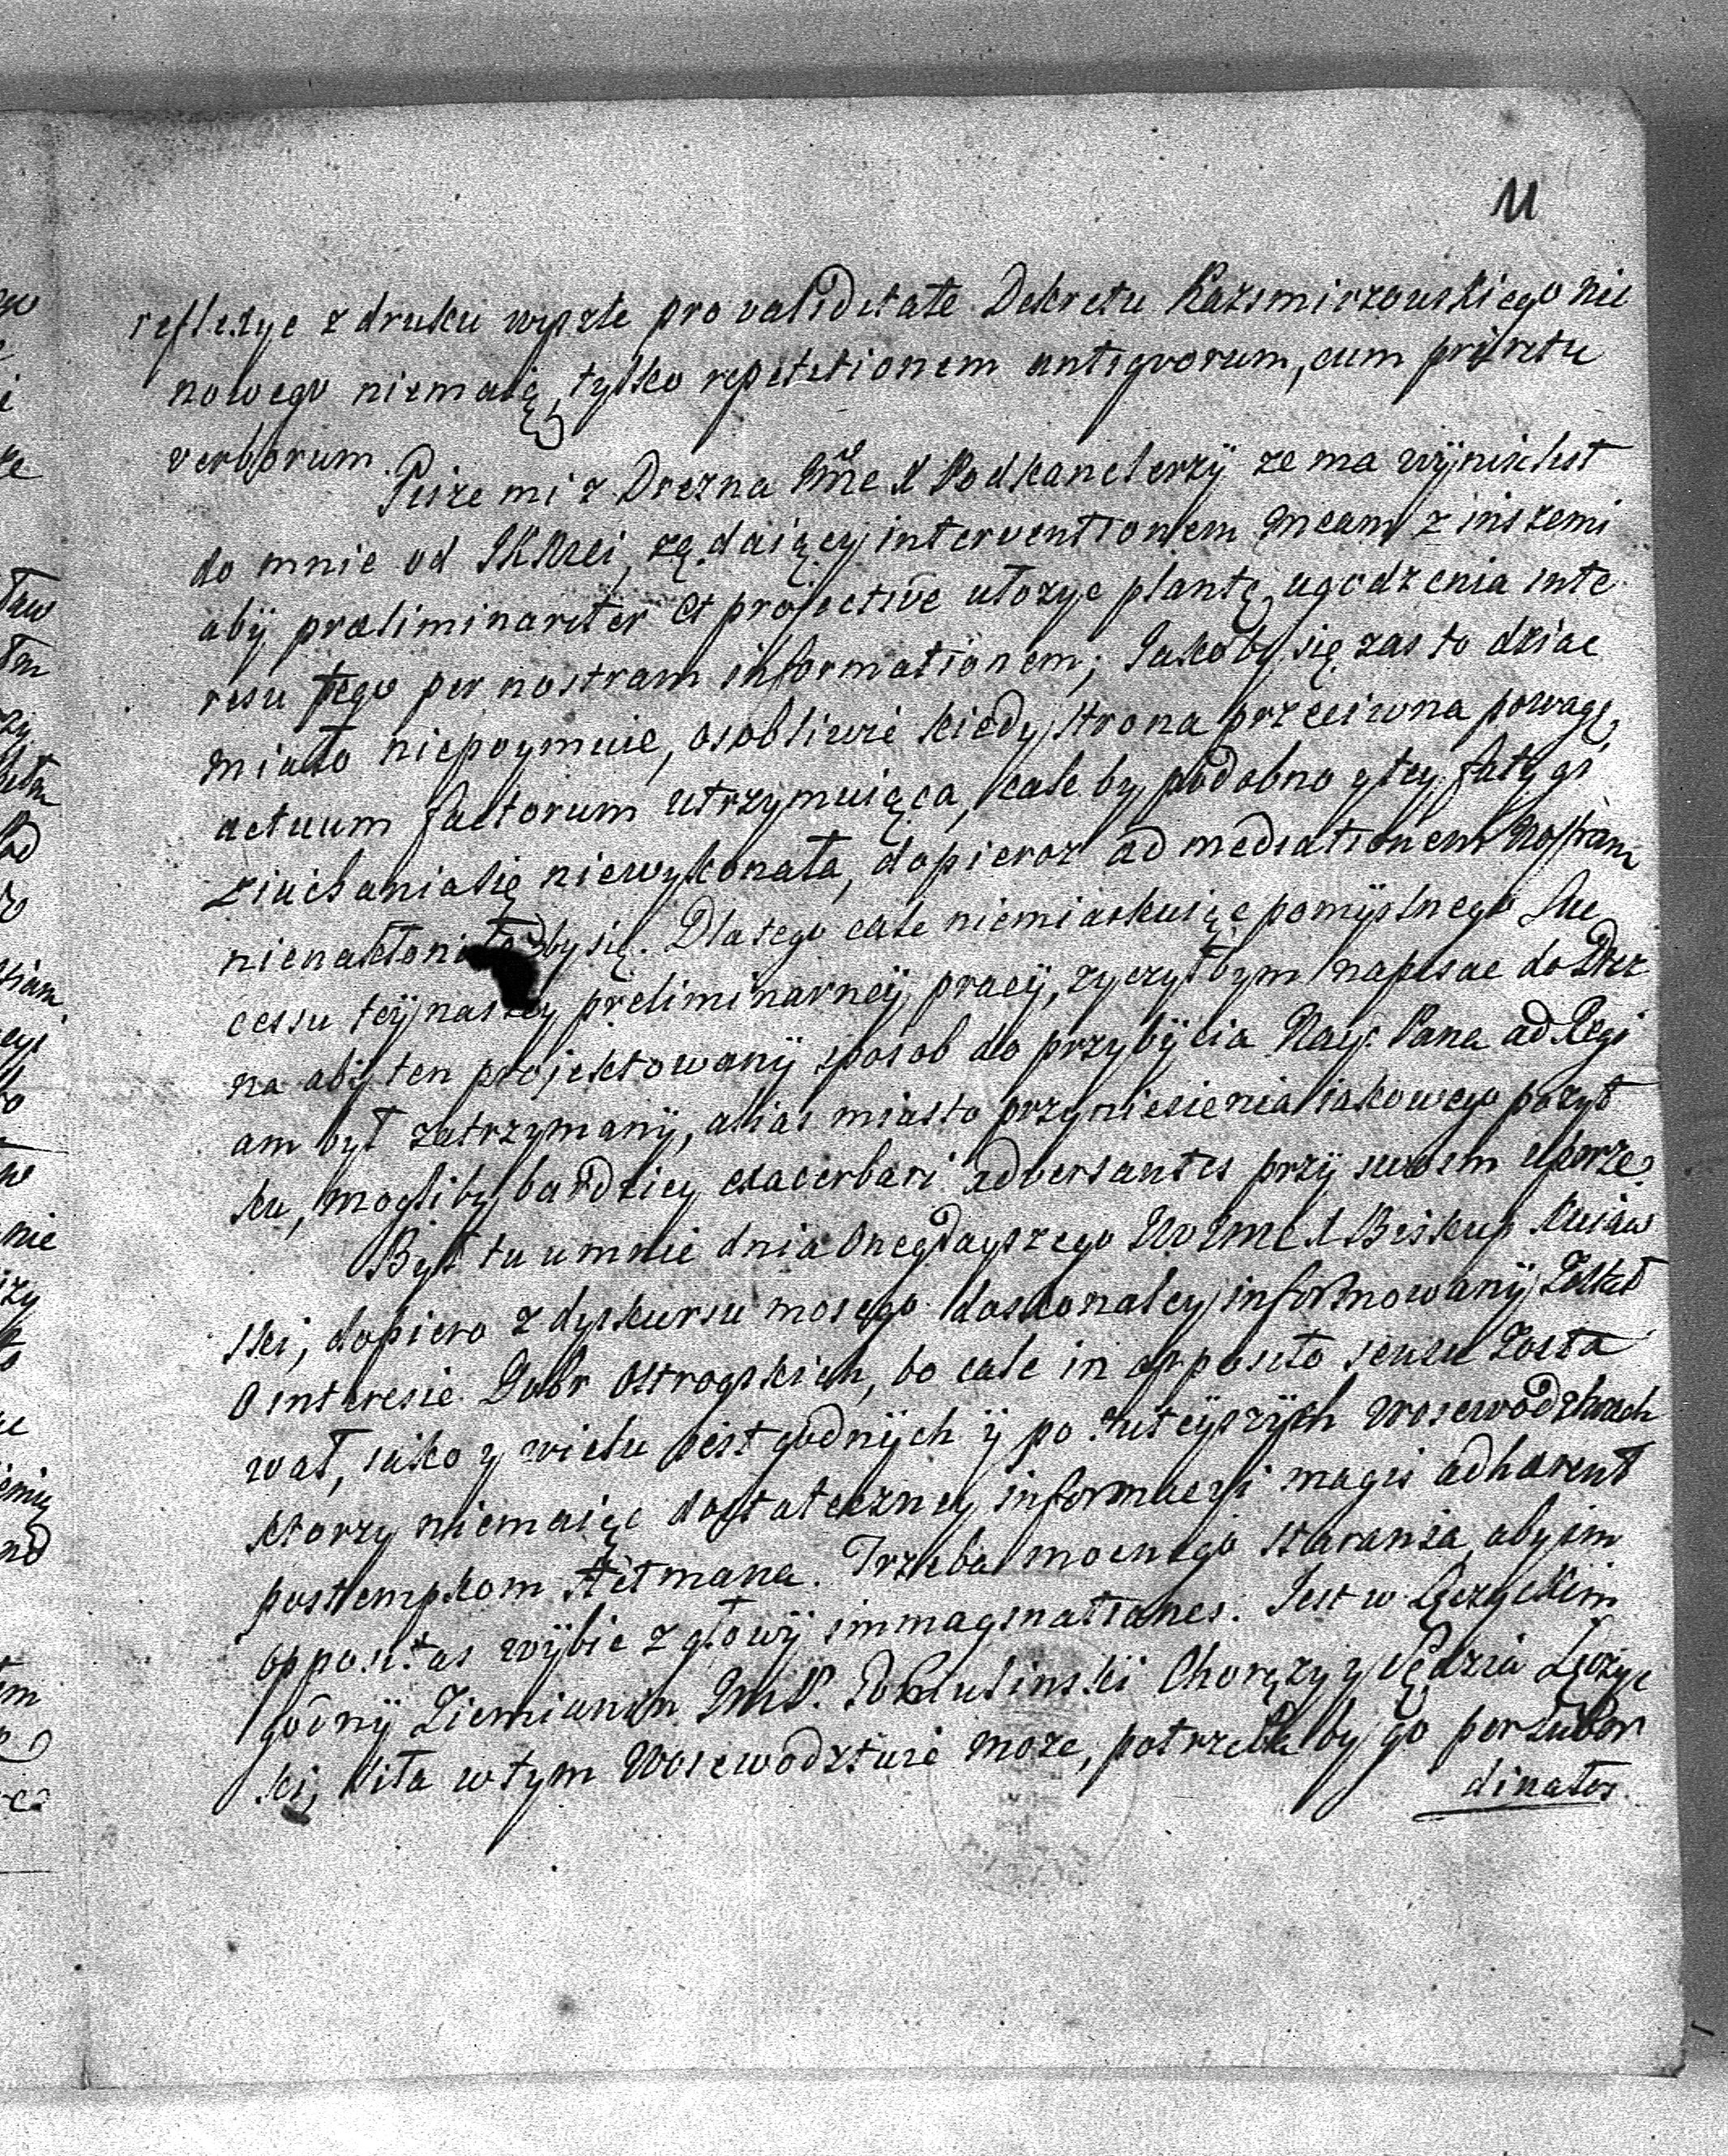 11
reflexye z druku wyszłe pro validitate Dekretu Kazimirzowskiego nic
nowego niemaią, tylko repetitionem antiqvorum, cum pruritu
verborum.
Pisze mi z Drezna Jme X Podkanclerzÿ ze ma wÿniść list
do mnie od JKMci, ządaiący interventionem meam z inszemi
abÿ præliminariter et projective ułozyc plantę ugodzenia inte
resu tego per nostram informationem; Jakoby się zas to dziac
miało niepoymuie, osobliwie kiedy strona przeciwna powagę
actuum factorum utrzymuiąca, cale by podobno y tey fatygi
ziachania się niewykonała, dopieroz ad mediationem nostram
nienakłoniłaby się. Dlatego cale niemiarkuiąc pomÿslnego Suc
cessu teÿ naszey preliminarneÿ pracÿ, zyczyłbym napisac do Drez
na abÿ ten projektowanÿ sposob do przybÿcia Nayj: Pana ad Regi
am był zatrzymanÿ, alias miasto przyniesienia iakowego pozyt
ku, mogliby bardziey exacerbari adversantes przÿ swoim uporze.
Był tu u mnie dnia onegdayszego JW Jmc X Biskup Kuiaw
ski, dopiero z dyskursu moiego doskonaley informowanÿ Został
o interesie Dobr Ostrogskich, bo cale in opposito sensu Zosta
wał, iako y wielu iest godnÿch ÿ po tuteÿszÿch Woiewodztwach
ktorzy niemaiąc dostateczney informacyi magis adhærent
postempkom Hetmana. Trzeba mocnego starania, aby im
oppositas wÿbic z głowÿ immaginationes. Jest w Łęczyckim
godnÿ Ziemianin JmP. Chorązy y Sędzia Łęczyc
ki, siła w tym Woiewodztwie moze, potrzeba by go per subor
dinatos